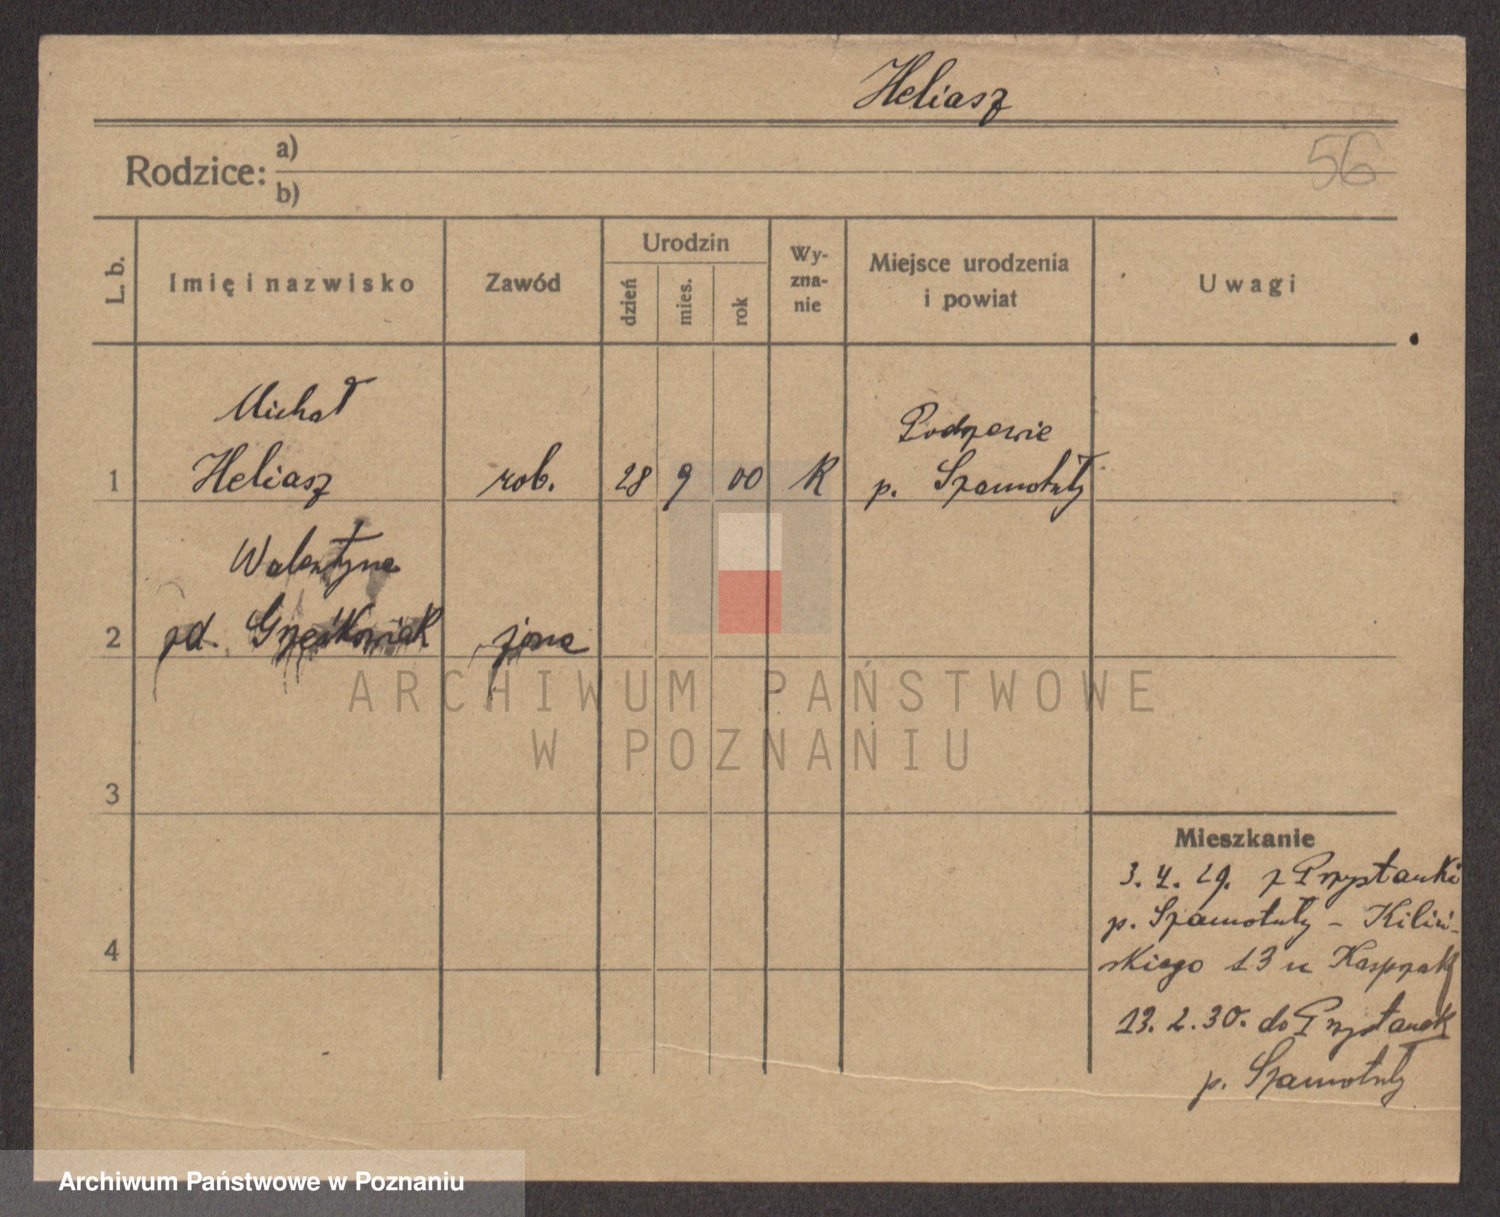 Heliasz
56
Rodzice: a)
b)
L. b.
Imię i nazwisko
Zawód
Urodzin
dzień
mies.
rok
Wy-
zna-
nie
Miejsce urodzenia
i powiat
Uwagi
1
Michał
Heliasz
rob.
28
9
00
K
p. Szamotuły
2
Walentyna
zd.
żona
3
4
Mieszkanie
3. 4. 29. z Przystanki
p. Szamotuły - Kiliń-
skiego 13 u Kasprzak
13. 2. 30. do Przystanek
p. Szamotuły
ARCHIWUM PAŃSTWOWE
W POZNANIU
Archiwum Państwowe w Poznaniu